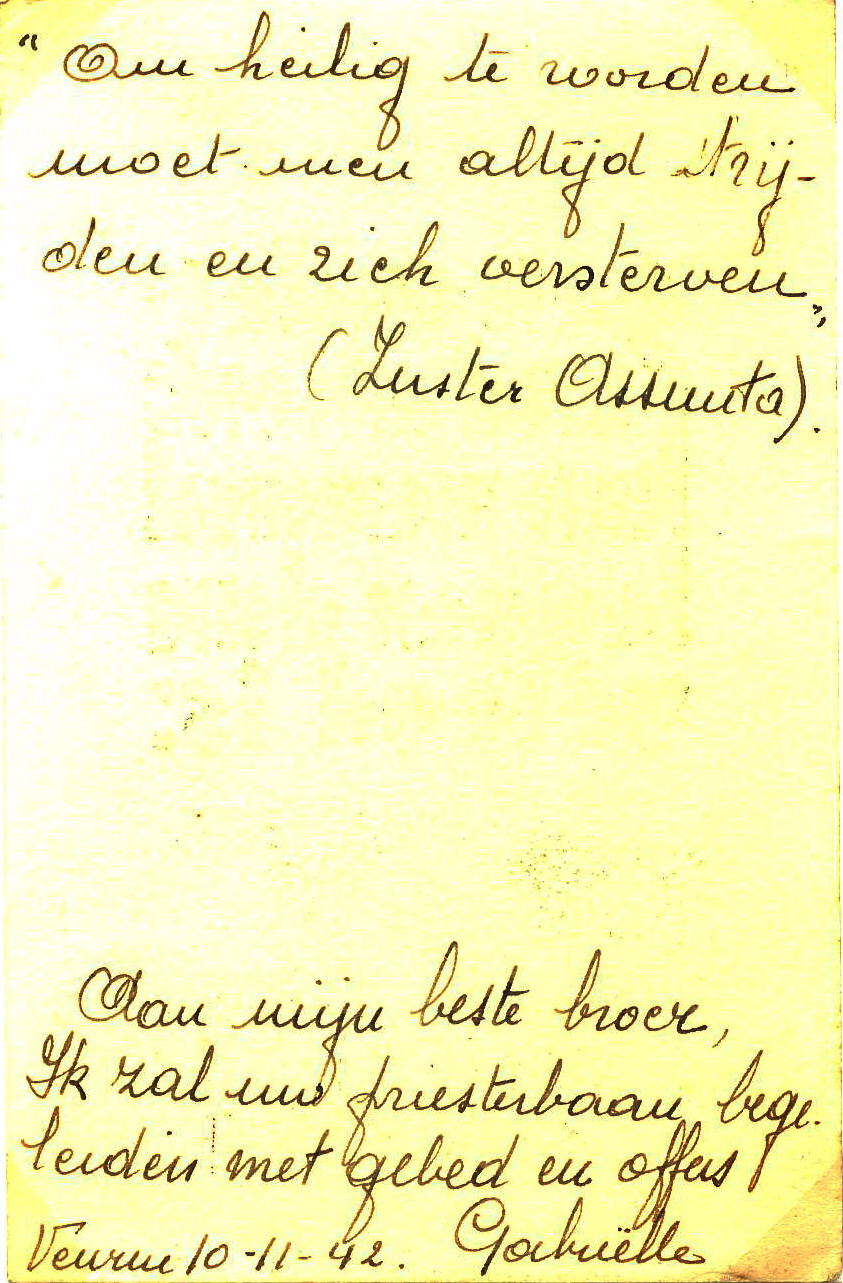 "Om heilig te worden
moet men altijd strij-
den en zich versterven"
(Zuster Assunta).
Aan mijn beste broer,
Ik zal uw priesterbaan bege-
leiden met gebed en offers
Veurne 10-11-42. Gabriëlle